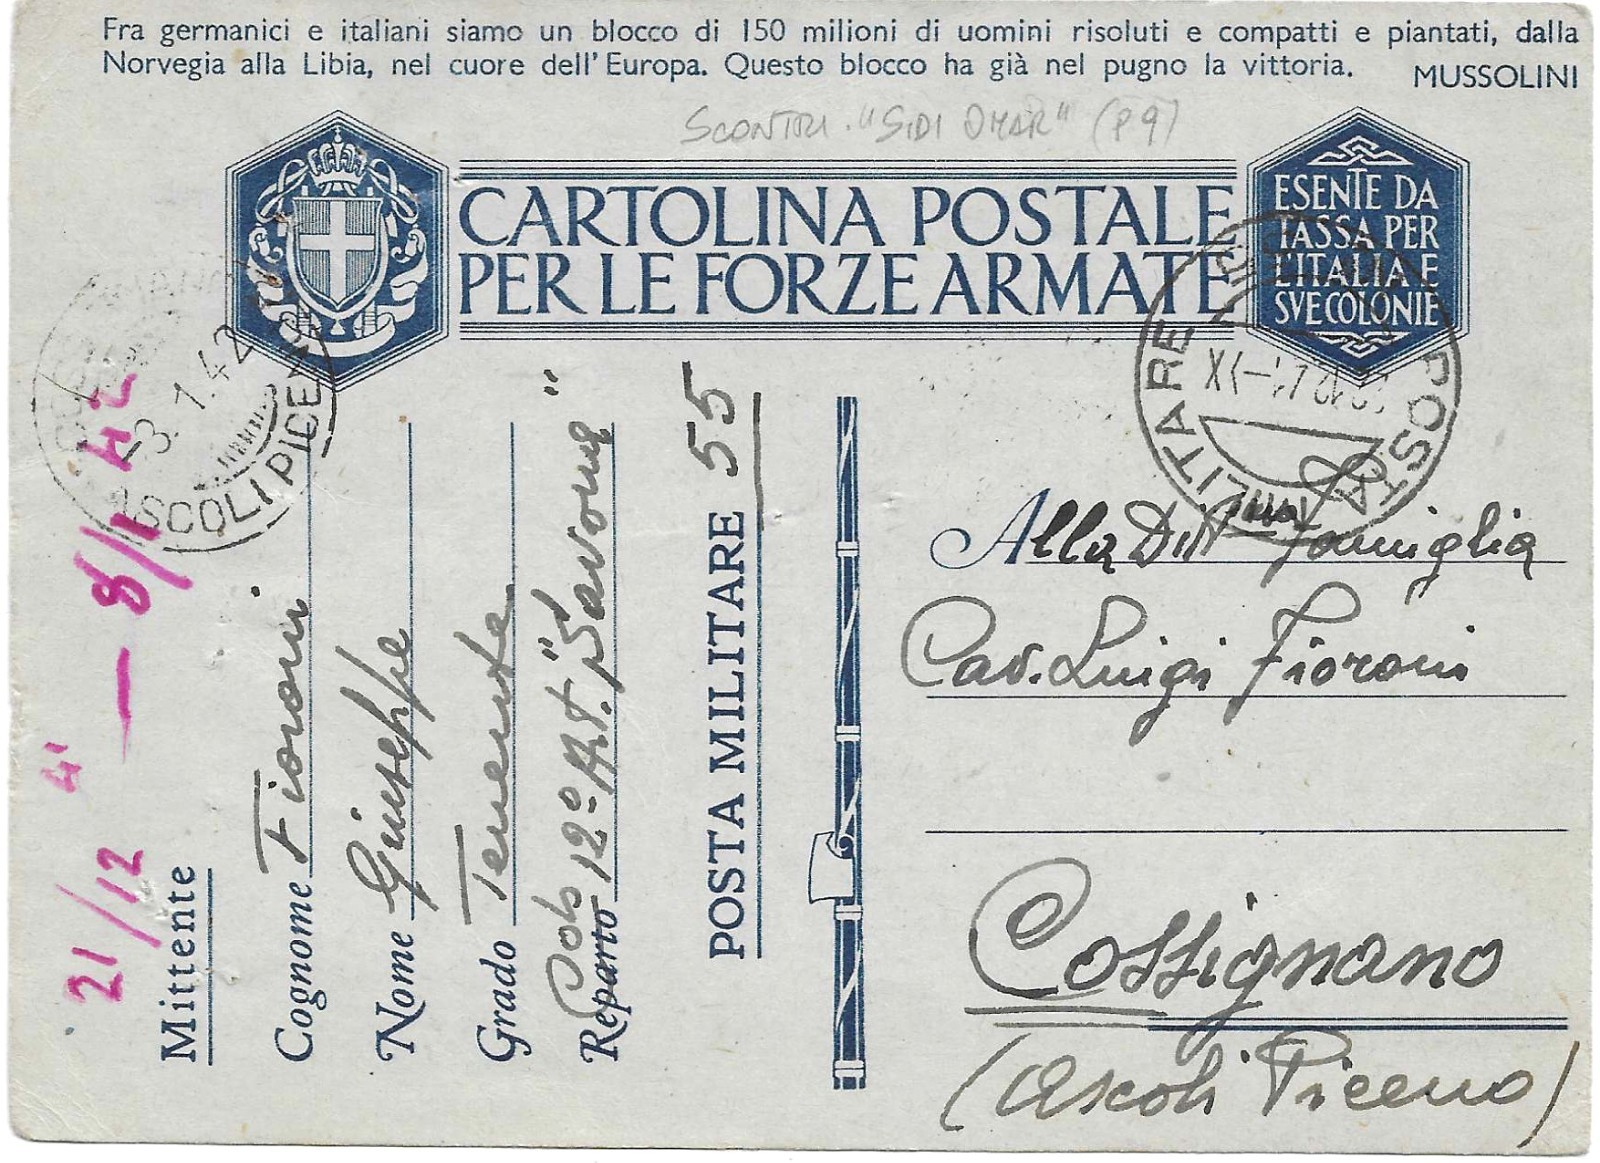 Fra germanici e italiani siamo un blocco di 150 milioni di uomini risoluti e compatti e piantati, dalla
Norvegia alla Libia, nel cuore dell'Europa. Questo blocco ha già nel pugno la vittoria. MUSSOLINI
SCONTRI "SIDI OMAR" (P 9)
CARTOLINA POSTALE
PER LE FORZE ARMATE
ESENTE DA
TASSA PER
L'ITALIA E
SVE COLONIE
-3.1.42
ASCOLI PICENO
POSTA MILITARE
21/12 41 — 8/1 42
Mittente
Cognome Fioroni
Nome Giuseppe
Grado Tenente
Reparto 12° Art. "Savona"
POSTA MILITARE 55
Alla Famiglia
Cav. Luigi Fioroni
Cossignano
(Ascoli Piceno)